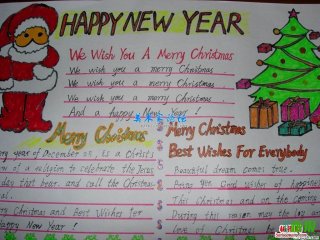 HAPPY NEW YEAR
We Wish You A Merry Christmas
We wish you a merry Christmas.
We wish you a merry Christmas
We wish you a merry Christmas.
And a happy New Year!
Merry Christmas
year of December 25, is a Christs
of a religion to celebrate the Jesus
day that bear, and call the Christmas
Christmas and Best Wishes for
Happy New Year!
Merry Christmas
Best Wishes For Everybody
Beautiful dream comes true.
Bring you Good wishes of happiness
This Christmas and on the coming
During this season may the joy a
love of Christmas